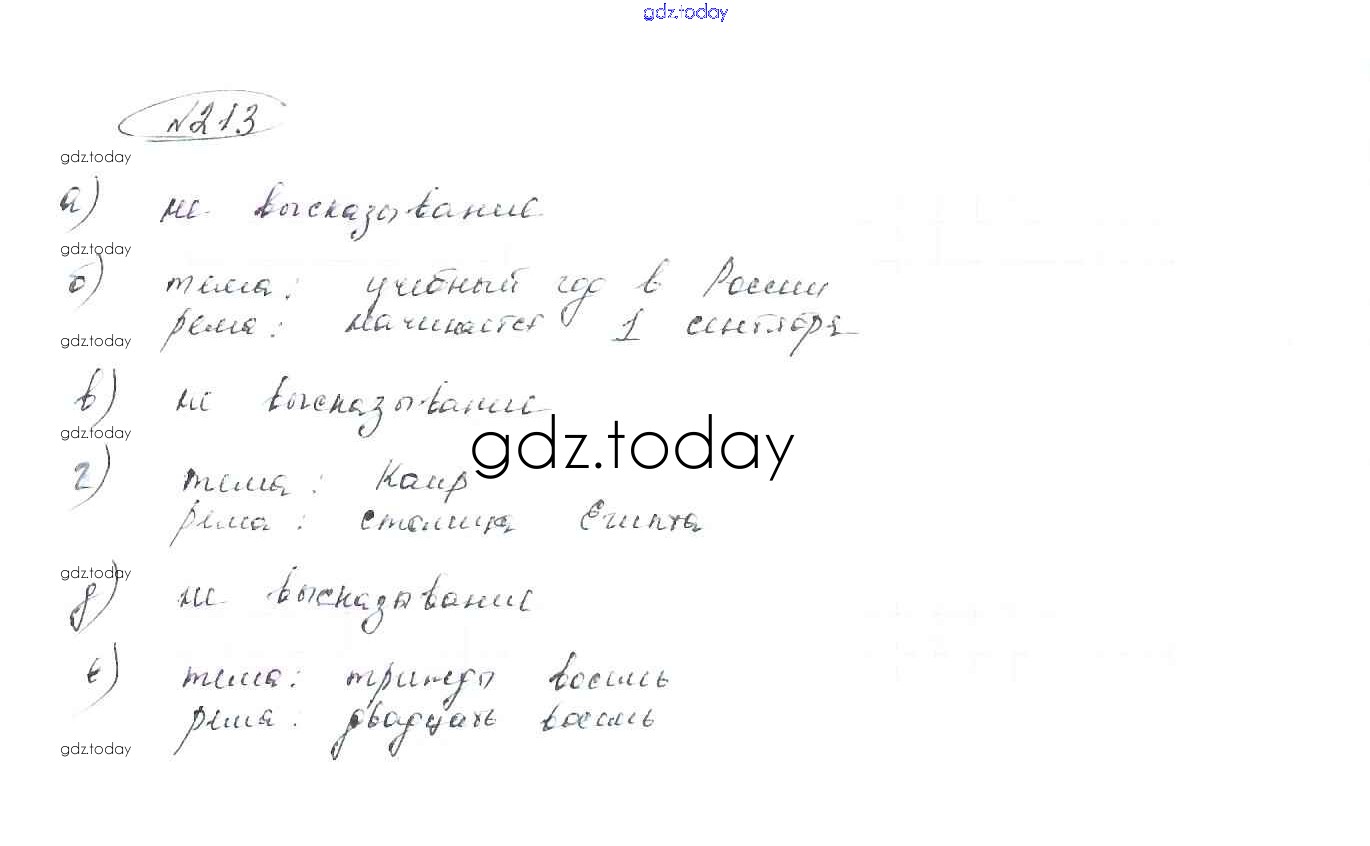 gdz.today
№213
gdz.today
а) не высказывание
gdz.today
б) тема: учебный год в России
рема: начинается 1 сентября
gdz.today
в) не высказывание
gdz.today
gdz.today
г) тема: Каир
рема: столица Египта
gdz.today
д) не высказывание
е) тема: трижды восемь
рема: двадцать восемь
gdz.today